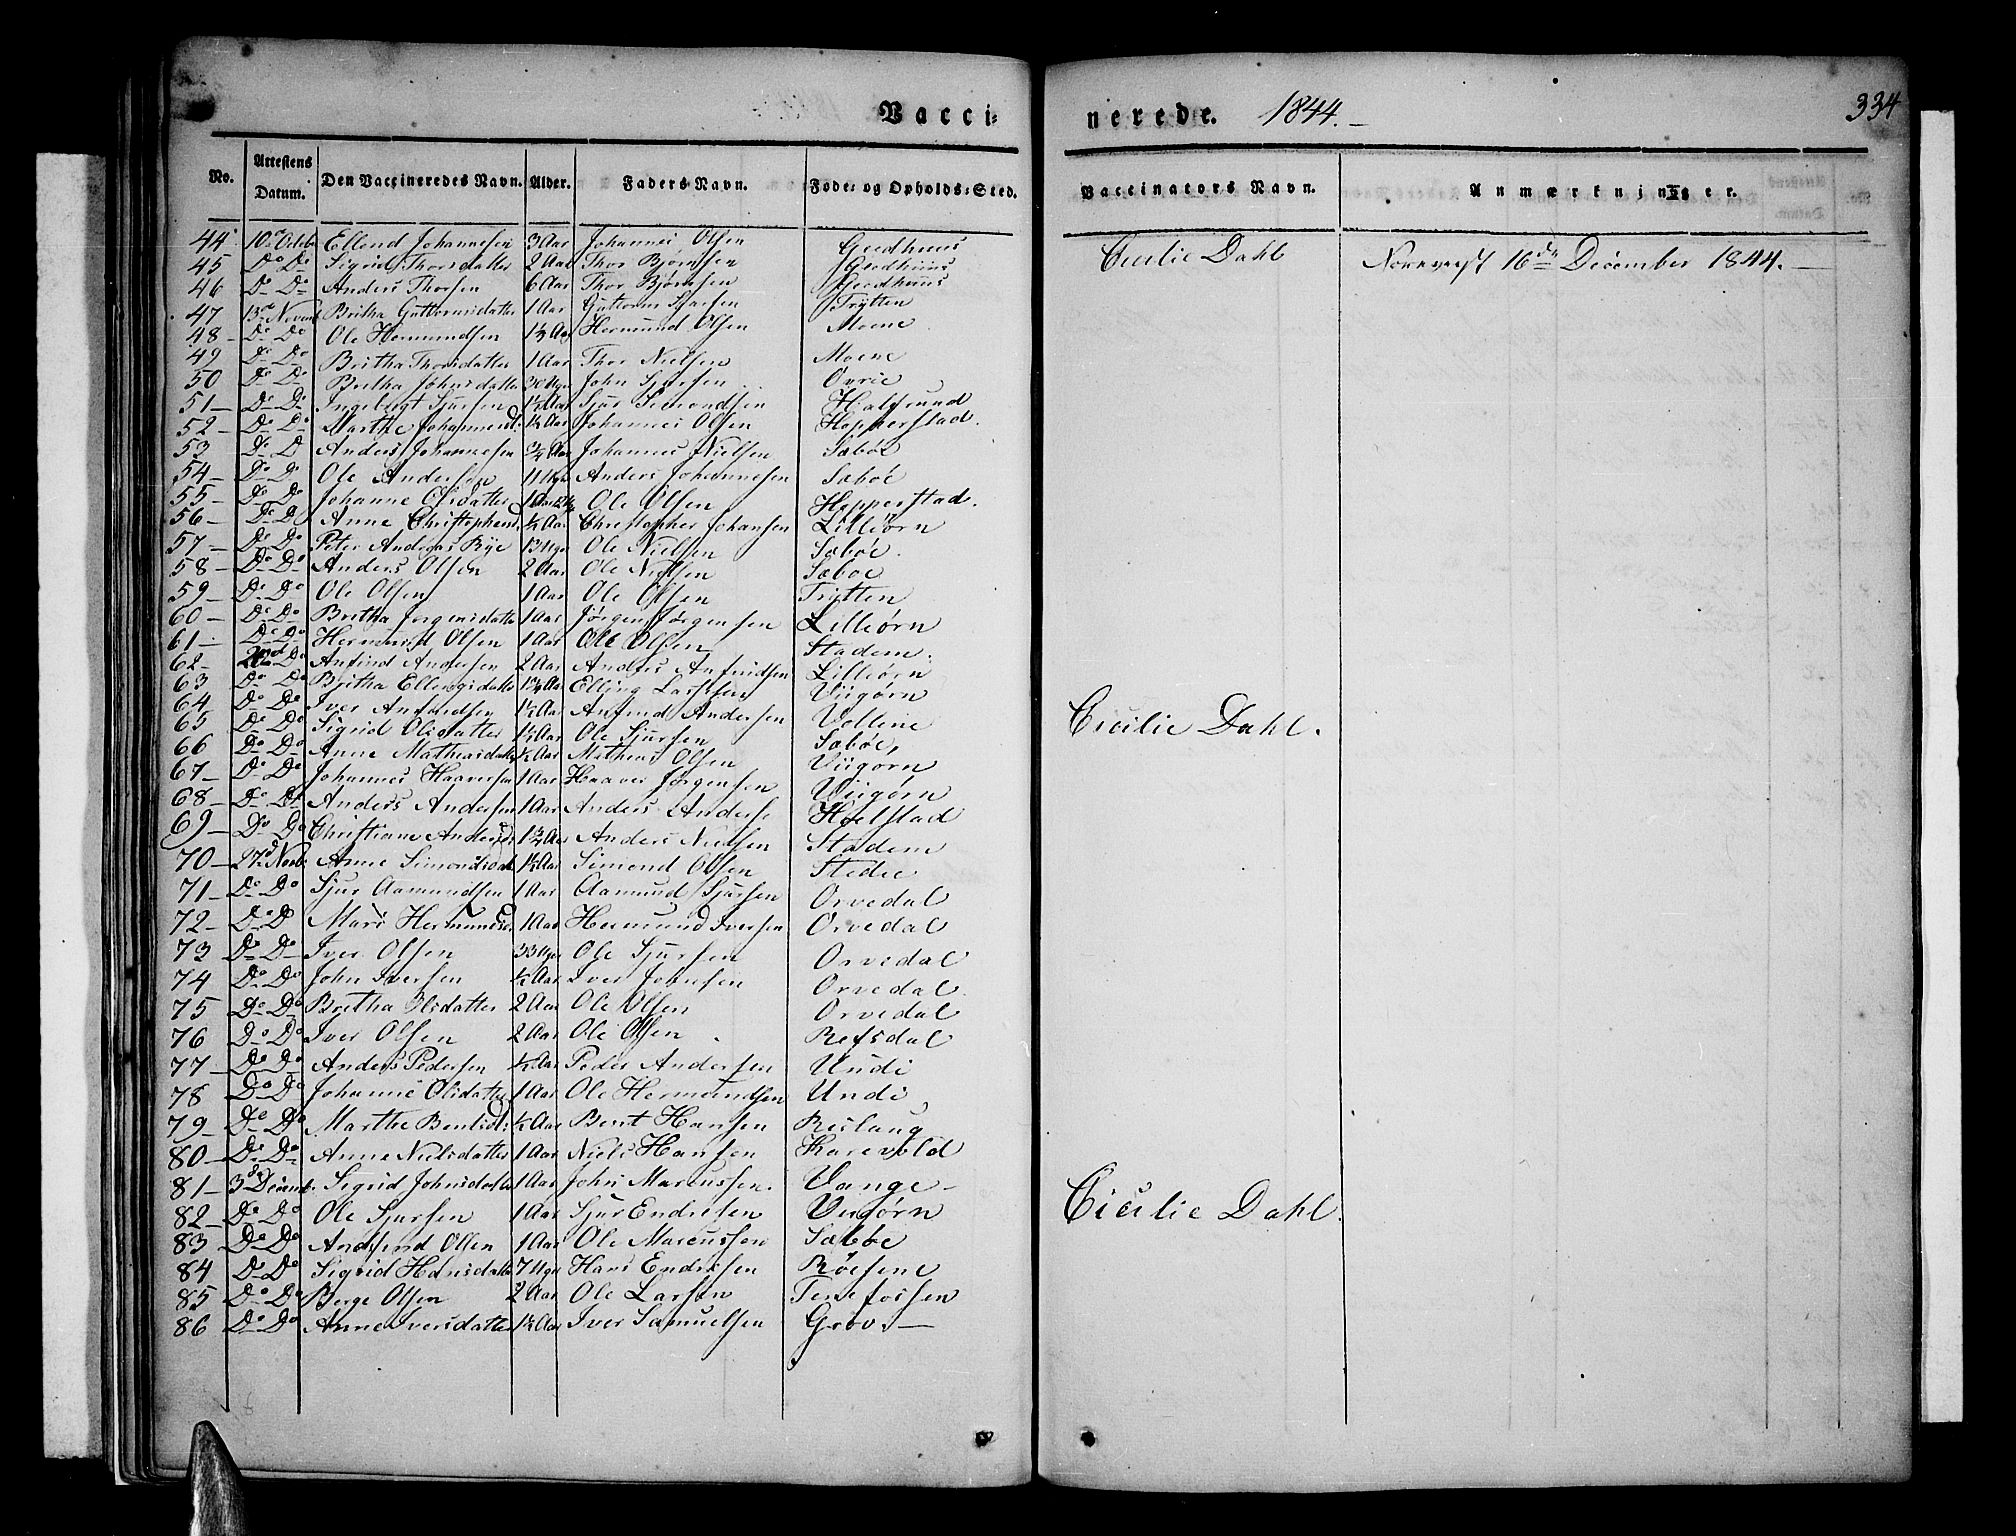 Vacci- nerede. 1844.
334
No. Attestens Datum. Den Vaccineredes Navn. Alder. Faders Navn. Føde- og Opholds-Sted. Vaccinators Navn. Anmærkninger.
44 10 Octob Ellend Johannesen 3 Aar Johannes Olsen Geedhuus Cecilie Dahl 16de December 1844.
45 Do Do Sigrid Thorsdatter 2 Aar Thor Bjørnsen Geedhuus
46 Do Do Anders Thorsen 6 Aar Thor Bjørnsen Geedhuus
47 13 Novemb Britha Guttormsdatter 1 Aar Guttorm Sjursen Trytten
48 Do Do Ole Hermundsen 1½ Aar Hermund Olsen Moene
49 Do Do Britha Thorsdatter 1 Aar Thor Nielsen Moene
50 Do Do Britha Johnsdatter 30 Uger John Sjursen Ovrie
51 Do Do Ingebrigt Sjursen 1½ Aar Sjur Simondsen
52 Do Do Marthe Johannesd. ½ Aar Johannes Olsen Hopperstad.
53 Do D Anders Johannesen ¾ Aar Johannes Nielsen Sæbøe
54 Do Do Ole Andersen 11 Uger Anders Johannesen Sæbøe
55 Do Do Johanne Olsdatter 1 Aar Ole Olsen Hopperstad.
56 Do D Anne Christophersd ½ Aar Christopher Johansen Lilleørn
57 Do Do Peter Andreas Rye 13 Uger Ole Nielsen Sæbøe.
58 Do Do Anders Olsen 2 Aar Ole Nielsen Sæboe
59 Do Do Ole Olsen 1 Aar Ole Olsen Trytten
60 Do Do Britha Jørgensdatter 1 Aar Jørgen Jørgensen Lilleørn
61 Do Do Hermund Olsen 1 Aar Ole Olsen Stadem.
62 Do Anfind Andersen 2 Aar Anders Anfindsen Lilleørn
63 Do Do Britha Ellingsdatter 1¾ Aar Elling Larssen Viigørn
64 Do Do Iver Anfindsen 1½ Aar Anfind Andersen Vollene Cicilie Dahl.
65 Do Do Sigrid Olsdatter 1½ Aar Ole Sjursen Sæbøe,
66 Do Do Anne Mathiasdatter ½ Aar Mathias Olsen Viigørn
67 Do Do Johannes Haaversen 1 Aar Haaver Jørgensen Viigørn
68 Do Do Anders Andersen 1 Aar Anders Anders. Hoelstad
69 Do Do Christiane Andersd 1¾ Aar Anders Nielsen Stadem
70 27 Novb Anne Simondsdat ½ Aar Simond Olsen Stedie
71 Do Do Sjur Aamundsen 1 Aar Aamund Sjursen Orvedal
72 Do D Mari Hermundsd 1 Aar Hermund Iversen Orvedal
73 Do Do Iver Olsen 33 Uger Ole Sjursen Orvedal
74 Do Do John Iversen ½ Aar Iver Johnsen Orvedal
75 Do Do Britha Olsdatter 2 Aar Ole Olsen Orvedal
76 Do Do Iver Olsen 2 Aar Ole Olsen Refsdal
77 Do Do Anders Pedersen ½ Aar Peder Andersen Undi
78 Do Do Johanne Olsdatter 1 Aar Ole Hermundsen Undi
79 Do Do Marthe Bentsd. ½ Aar Bent Hansen Reslaug
80 Do Do Anne Nielsdatter 1 Aar Niels Hansen Harevold
81 3 Decemb. Sigrid Johnsdatter 1 Aar John Marcussen. Vange Cicilie Dahl.
82 Do Do Ole Sjursen 1 Aar Sjur Endresen Viigørn
83 Do Do Andfind Olsen 1 Aar Ole Marcussen Sæbøe
84 Do Do Sigrid Hansdatter 7 Uger Hans Endresen Røesene
85 Do Do Berge Olsen 2 Aar Ole Larsen Tenefossen
86 Do Do Anne Iversdatter 1½ Aar Iver Samuelsen Grøv.